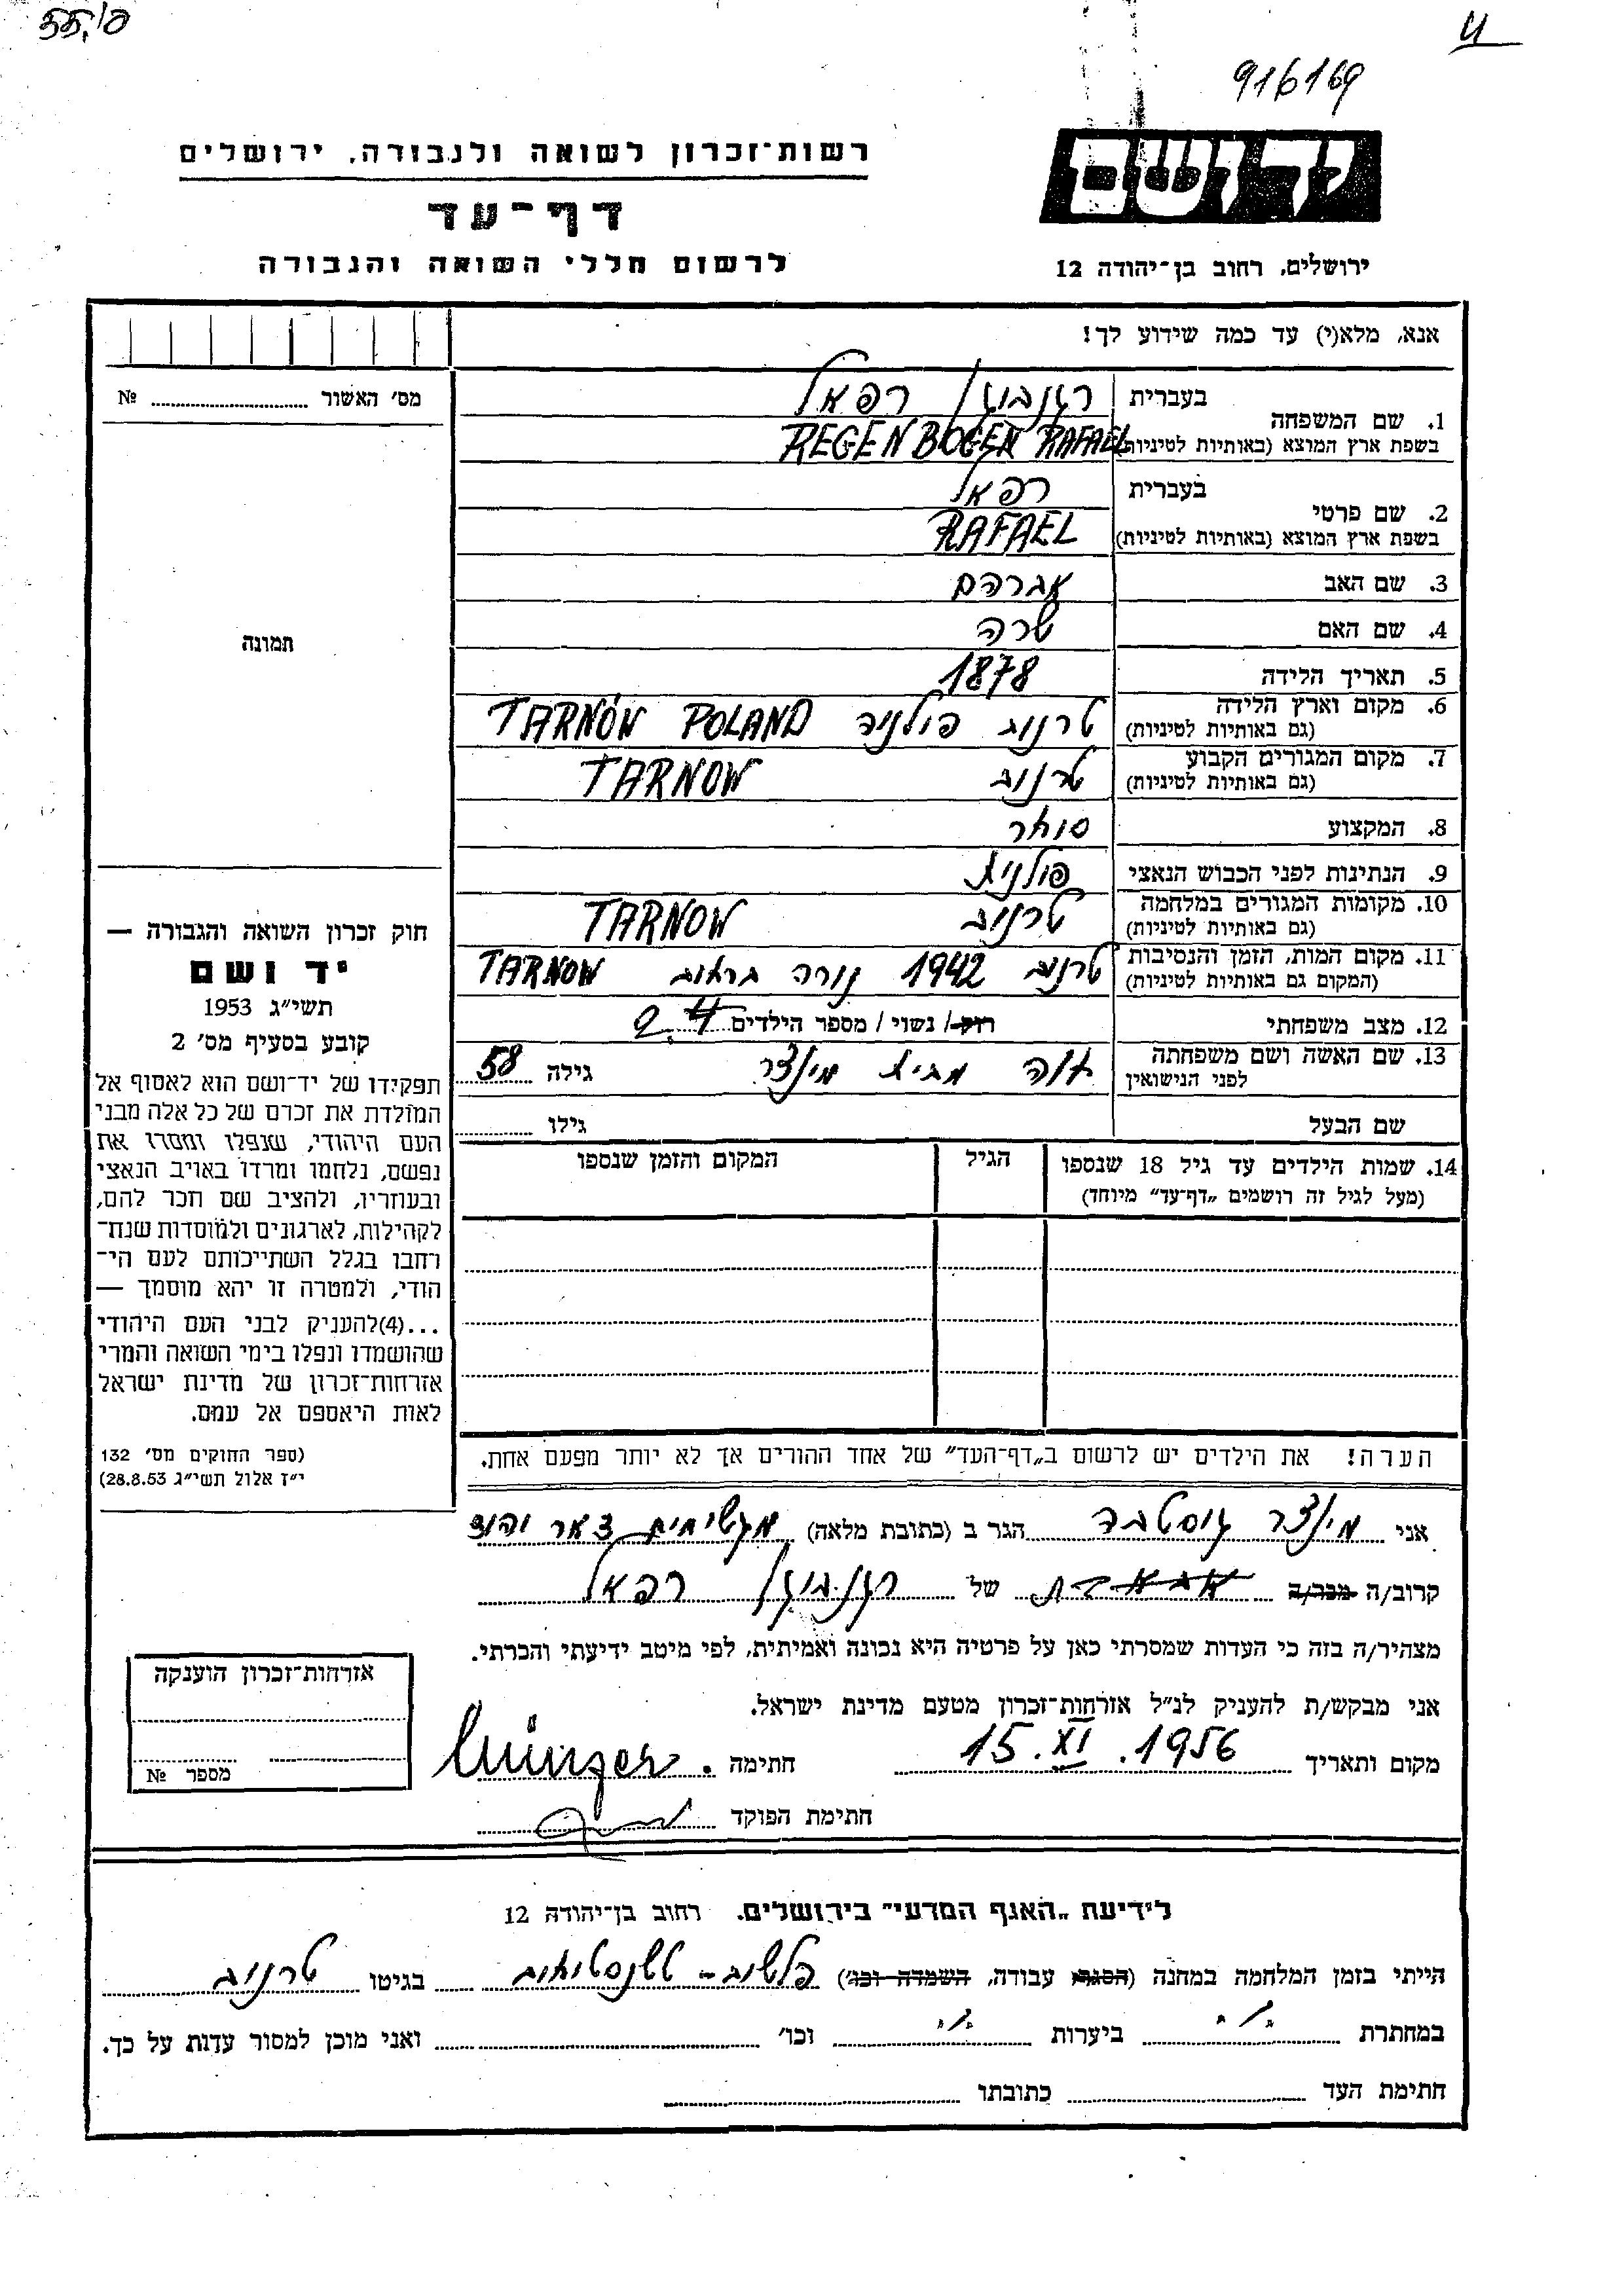 55.
916169
רשות־זכרון לשואה ולגבורה, ירושלים
יד ושם
דף־עד
לרשום חללי השואה והגבורה
ירושלים, רחוב בן־יהודה 12
אנא, מלא(י) עד כמה שידוע לך!
מס' האשור № 
1. שם המשפחה
בעברית רגנבוגן רפאל
בשפת ארץ המוצא (באותיות לטיניות) REGENBOGEN RAFAEL
2. שם פרטי
בעברית רפאל
בשפת ארץ המוצא (באותיות לטיניות) RAFAEL
3. שם האב אברהם
4. שם האם שרה
תמונה
5. תאריך הלידה 1878
6. מקום וארץ הלידה (גם באותיות לטיניות) טרנוב פולניה TARNÓW POLAND
7. מקום המגורים הקבוע (גם באותיות לטיניות) טרנוב TARNOW
8. המקצוע סוחר
9. הנתינות לפני הכבוש הנאצי פולנית
10. מקומות המגורים במלחמה (גם באותיות לטיניות) טרנוב TARNOW
11. מקום המות, הזמן והנסיבות (המקום גם באותיות לטיניות) טרנוב 1942 נורה TARNOW
12. מצב משפחתי רוק/ נשוי / מספר הילדים 4
13. שם האשה ושם משפחתה לפני הנישואין מינצר גילה 58
שם הבעל גילו
14. שמות הילדים עד גיל 18 שנספו הגיל המקום והזמן שנספו
(מעל לגיל זה רושמים „דף־עד” מיוחד)
הערה! את הילדים יש לרשום ב„דף־העד” של אחד ההורים אך לא יותר מפעם אחת.
חוק זכרון השואה והגבורה —
יד ושם
תשי״ג 1953
קובע בסעיף מס' 2
תפקידו של יד־ושם הוא לאסוף אל
המולדת את זכרם של כל אלה מבני
העם היהודי, שנפלו ומסרו את
נפשם, נלחמו ומרדו באויב הנאצי
ובעוזריו, ולהציב שם וזכר להם,
לקהילות, לארגונים ולמוסדות שנח־
רבו בגלל השתייכותם לעם הי־
הודי, ולמטרה זו יהא מוסמך —
...(4)להעניק לבני העם היהודי
שהושמדו ונפלו בימי השואה והמרי
אזרחות־זכרון של מדינת ישראל
לאות היאספם אל עמם.
(ספר החוקים מס' 132
י״ז אלול תשי״ג 28.8.53)
אני מינצר גוסטבה הגר ב (כתובת מלאה)
קרוב/ה מכר/ה של רגנבוגן רפאל
מצהיר/ה בזה כי העדות שמסרתי כאן על פרטיה היא נכונה ואמיתית, לפי מיטב ידיעתי והכרתי.
אני מבקש/ת להעניק לנ״ל אזרחות־זכרון מטעם מדינת ישראל.
מקום ותאריך 15.XI.1956 חתימה Münzer.
חתימת הפוקד
אזרחות־זכרון הוענקה
מספר №
לידיעת „האגף המדעי” בירושלים. רחוב בן־יהודה 12
הייתי בזמן המלחמה במחנה (הסגר עבודה, השמדה וכו') פלשוב - בגיטו טרנוב
במחתרת ביערות וכו' ואני מוכן למסור עדות על כך.
חתימת העד כתובתו